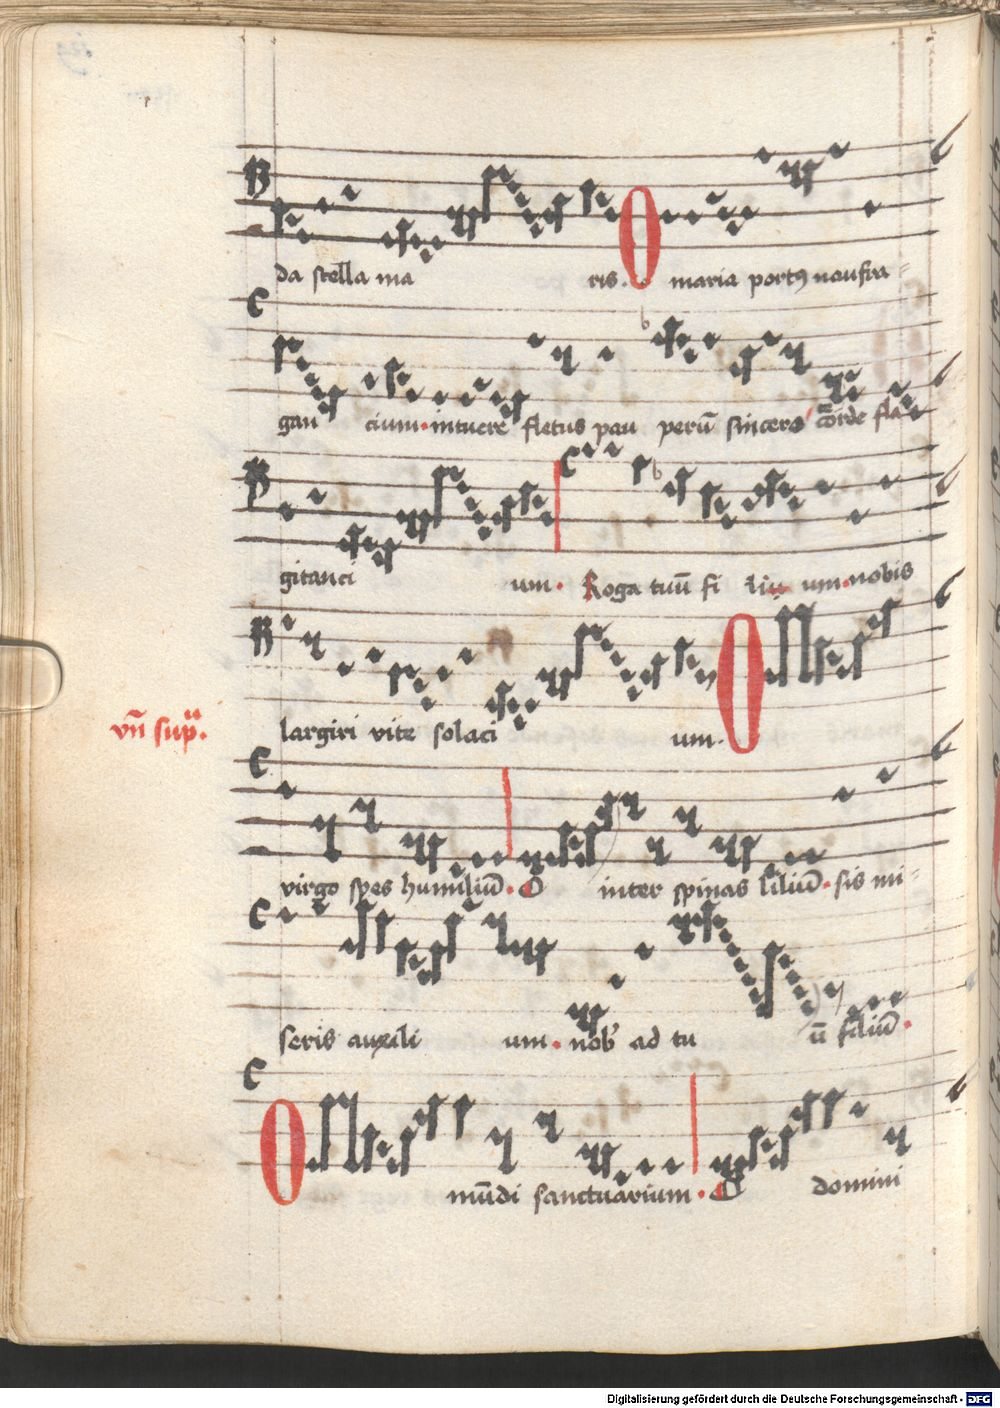 da stella ma ris. O maria portꝯ naufra-
gan cium. intuere fletus pau perū sincero corde fla
gitanci um. Roga tuū fi liu um. nobis
largiri vite solaci um. O
vn̄ supͣ.
virgo spes humiliū. O inter spinas liliū. sis mi-
seris auxili um. nob ad tu ū filiū.
O mūdi sanctuarium. O domini
Digitalisierung gefördert durch die Deutsche Forschungsgemeinschaft - DFG